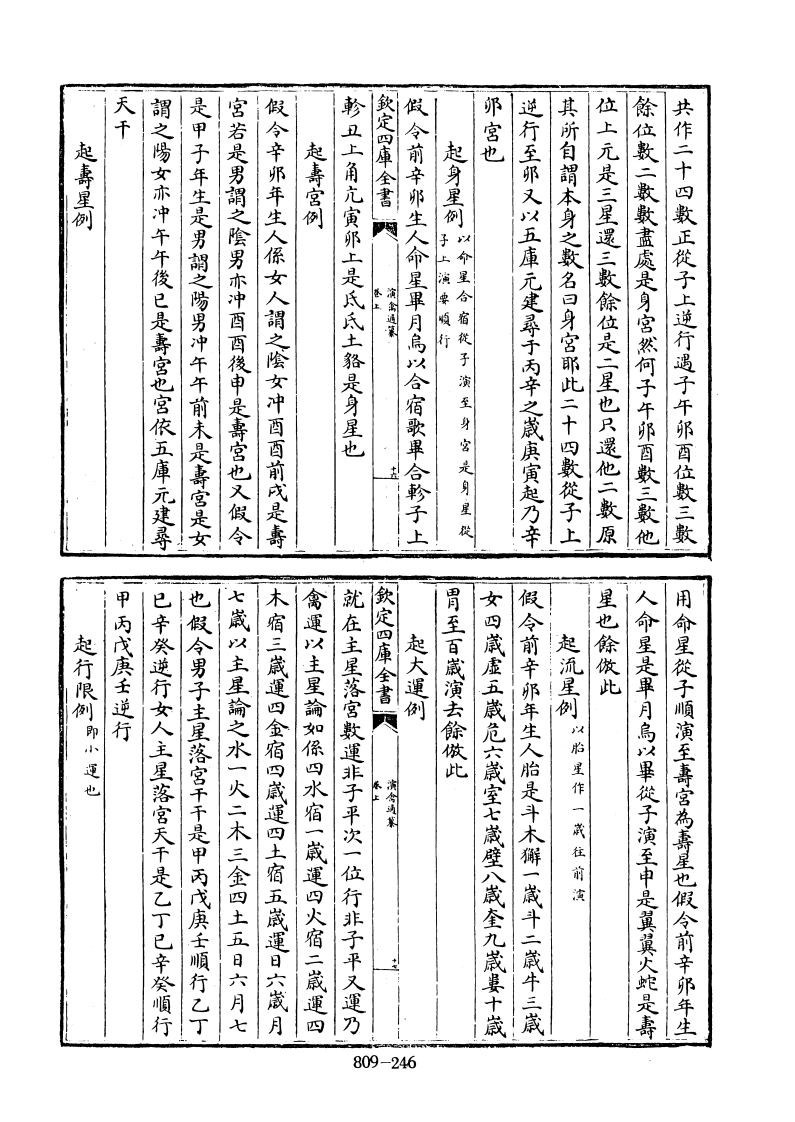 共作二十四數正從子上逆行遇子午卯酉位數三數
餘位數二數數盡處是身宮然何子午卯酉數三數他
位上元是三星還三數餘位是二星也只還他二數原
其所自謂本身之數名曰身宮耶此二十四數從子上
逆行至卯又以五庫元建尋于丙辛之歲庚寅起乃辛
卯宮也
起身星例
以命星合宿從子演至身宮是身星從
子上演要順行
假令前辛卯生人命星畢月烏以合宿歌畢合軫子上
欽定四庫全書
演禽通纂
卷上
軫丑上角亢寅卯上是氐氐土貉是身星也
起壽宮例
假令辛卯年生人係女人謂之陰女冲酉酉前戌是壽
宮若是男謂之陰男亦冲酉酉後申是壽宮也又假令
是甲子年生是男謂之陽男冲午午前未是壽宮是女
謂之陽女亦冲午午後巳是壽宮也宮依五庫元建尋
天干
起壽星例
用命星從子順演至壽宮為壽星也假令前辛卯年生
人命星是畢月烏以畢從子演至申是翼翼火蛇是壽
星也餘倣此
起流星例
以胎星作一歲往前演
假令前辛卯年生人胎是斗木獬一歲斗二歲牛三歲
女四歲虛五歲危六歲室七歲壁八歲奎九歲婁十歲
胃至百歲演去餘倣此
起大運例
欽定四庫全書
演禽通纂
卷上
就在主星落宮數運非子平次一位行非子平又運乃
禽運以主星論如係四水宿一歲運四火宿二歲運四
木宿三歲運四金宿四歲運四土宿五歲運日六歲月
七歲以主星論之水一火二木三金四土五日六月七
也假令男子主星落宮干干是甲丙戊庚壬順行乙丁
巳辛癸逆行女人主星落宮天干是乙丁巳辛癸順行
甲丙戊庚壬逆行
起行限例
即小運也
809-246